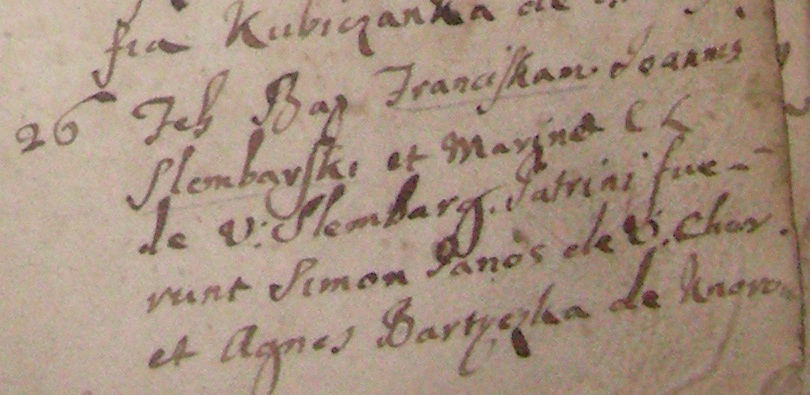 fia Kubiczanka de
26 Ieh Bap Franciskam Joannis
Slembarski et Marjnæ CC
de V: Slembarg. Patrini fue-
runt Simon Panos de V. Char.
et Agnes Bartyczka de Knoro